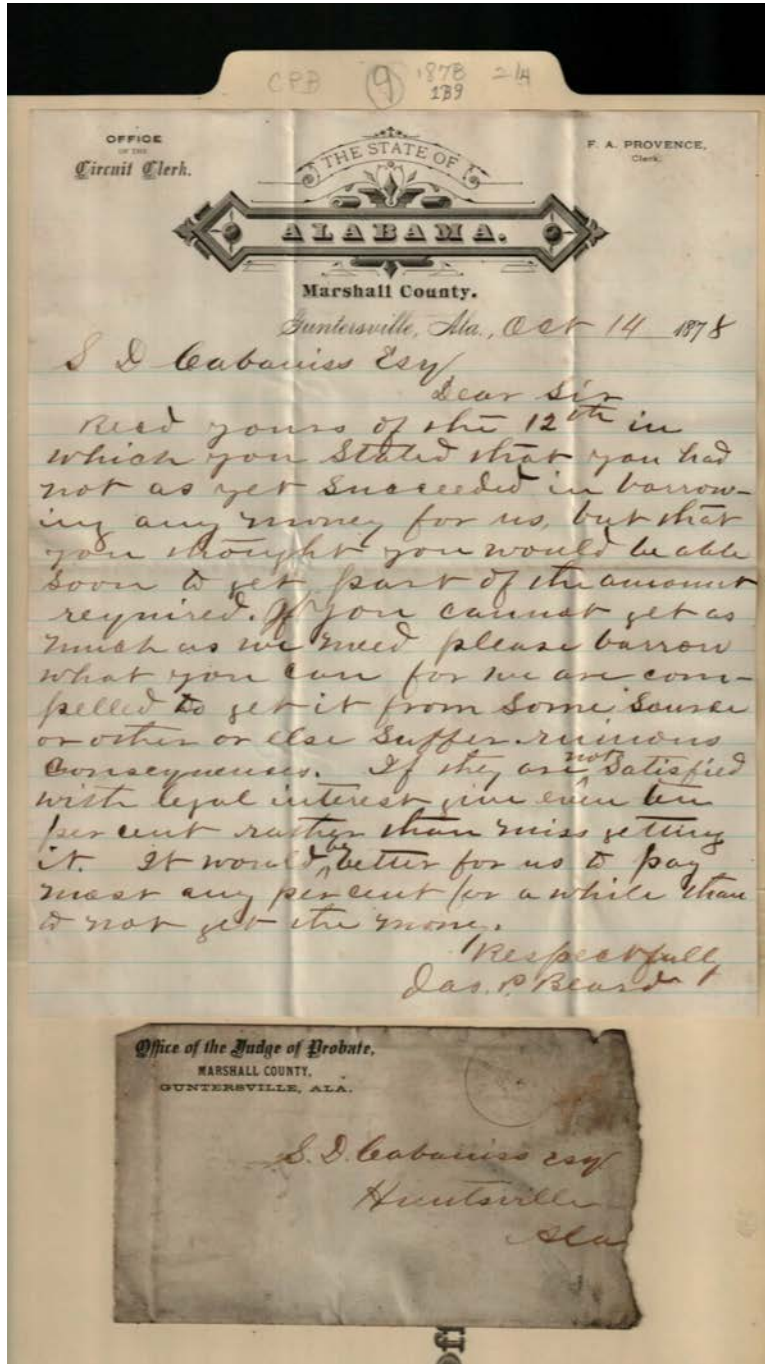 CPB 9 1878 2/4
139
OFFICE
OF THE
Circuit Clerk.
F. A. PROVENCE,
Clerk.
THE STATE OF
ALABAMA.
Marshall County.
Guntersville, Ala., Oct 14 1878
S D Cabaniss Esq
Dear Sir
Recd yours of the 12th in
which you Stated that you had
not as yet Succeeded in barrow-
ing any money for us, but that
you thought you would be able
soon to get part of the amount
required. If you cannot get as
much as we need please barrow
what you can for we are com-
pelled to get it from Some Sourse
or other or else Suffer ruinous
Consequenses. If they are not Satisfied
with legal interest give even ten
per cent rather than miss getting
it. It would be better for us to pay
most any per cent for a while than
to not get the money.
Respectfull
Jas. P. Beard
Office of the Judge of Probate,
MARSHALL COUNTY,
GUNTERSVILLE, ALA.
S. D. Cabaniss Esq
Huntsville
Ala